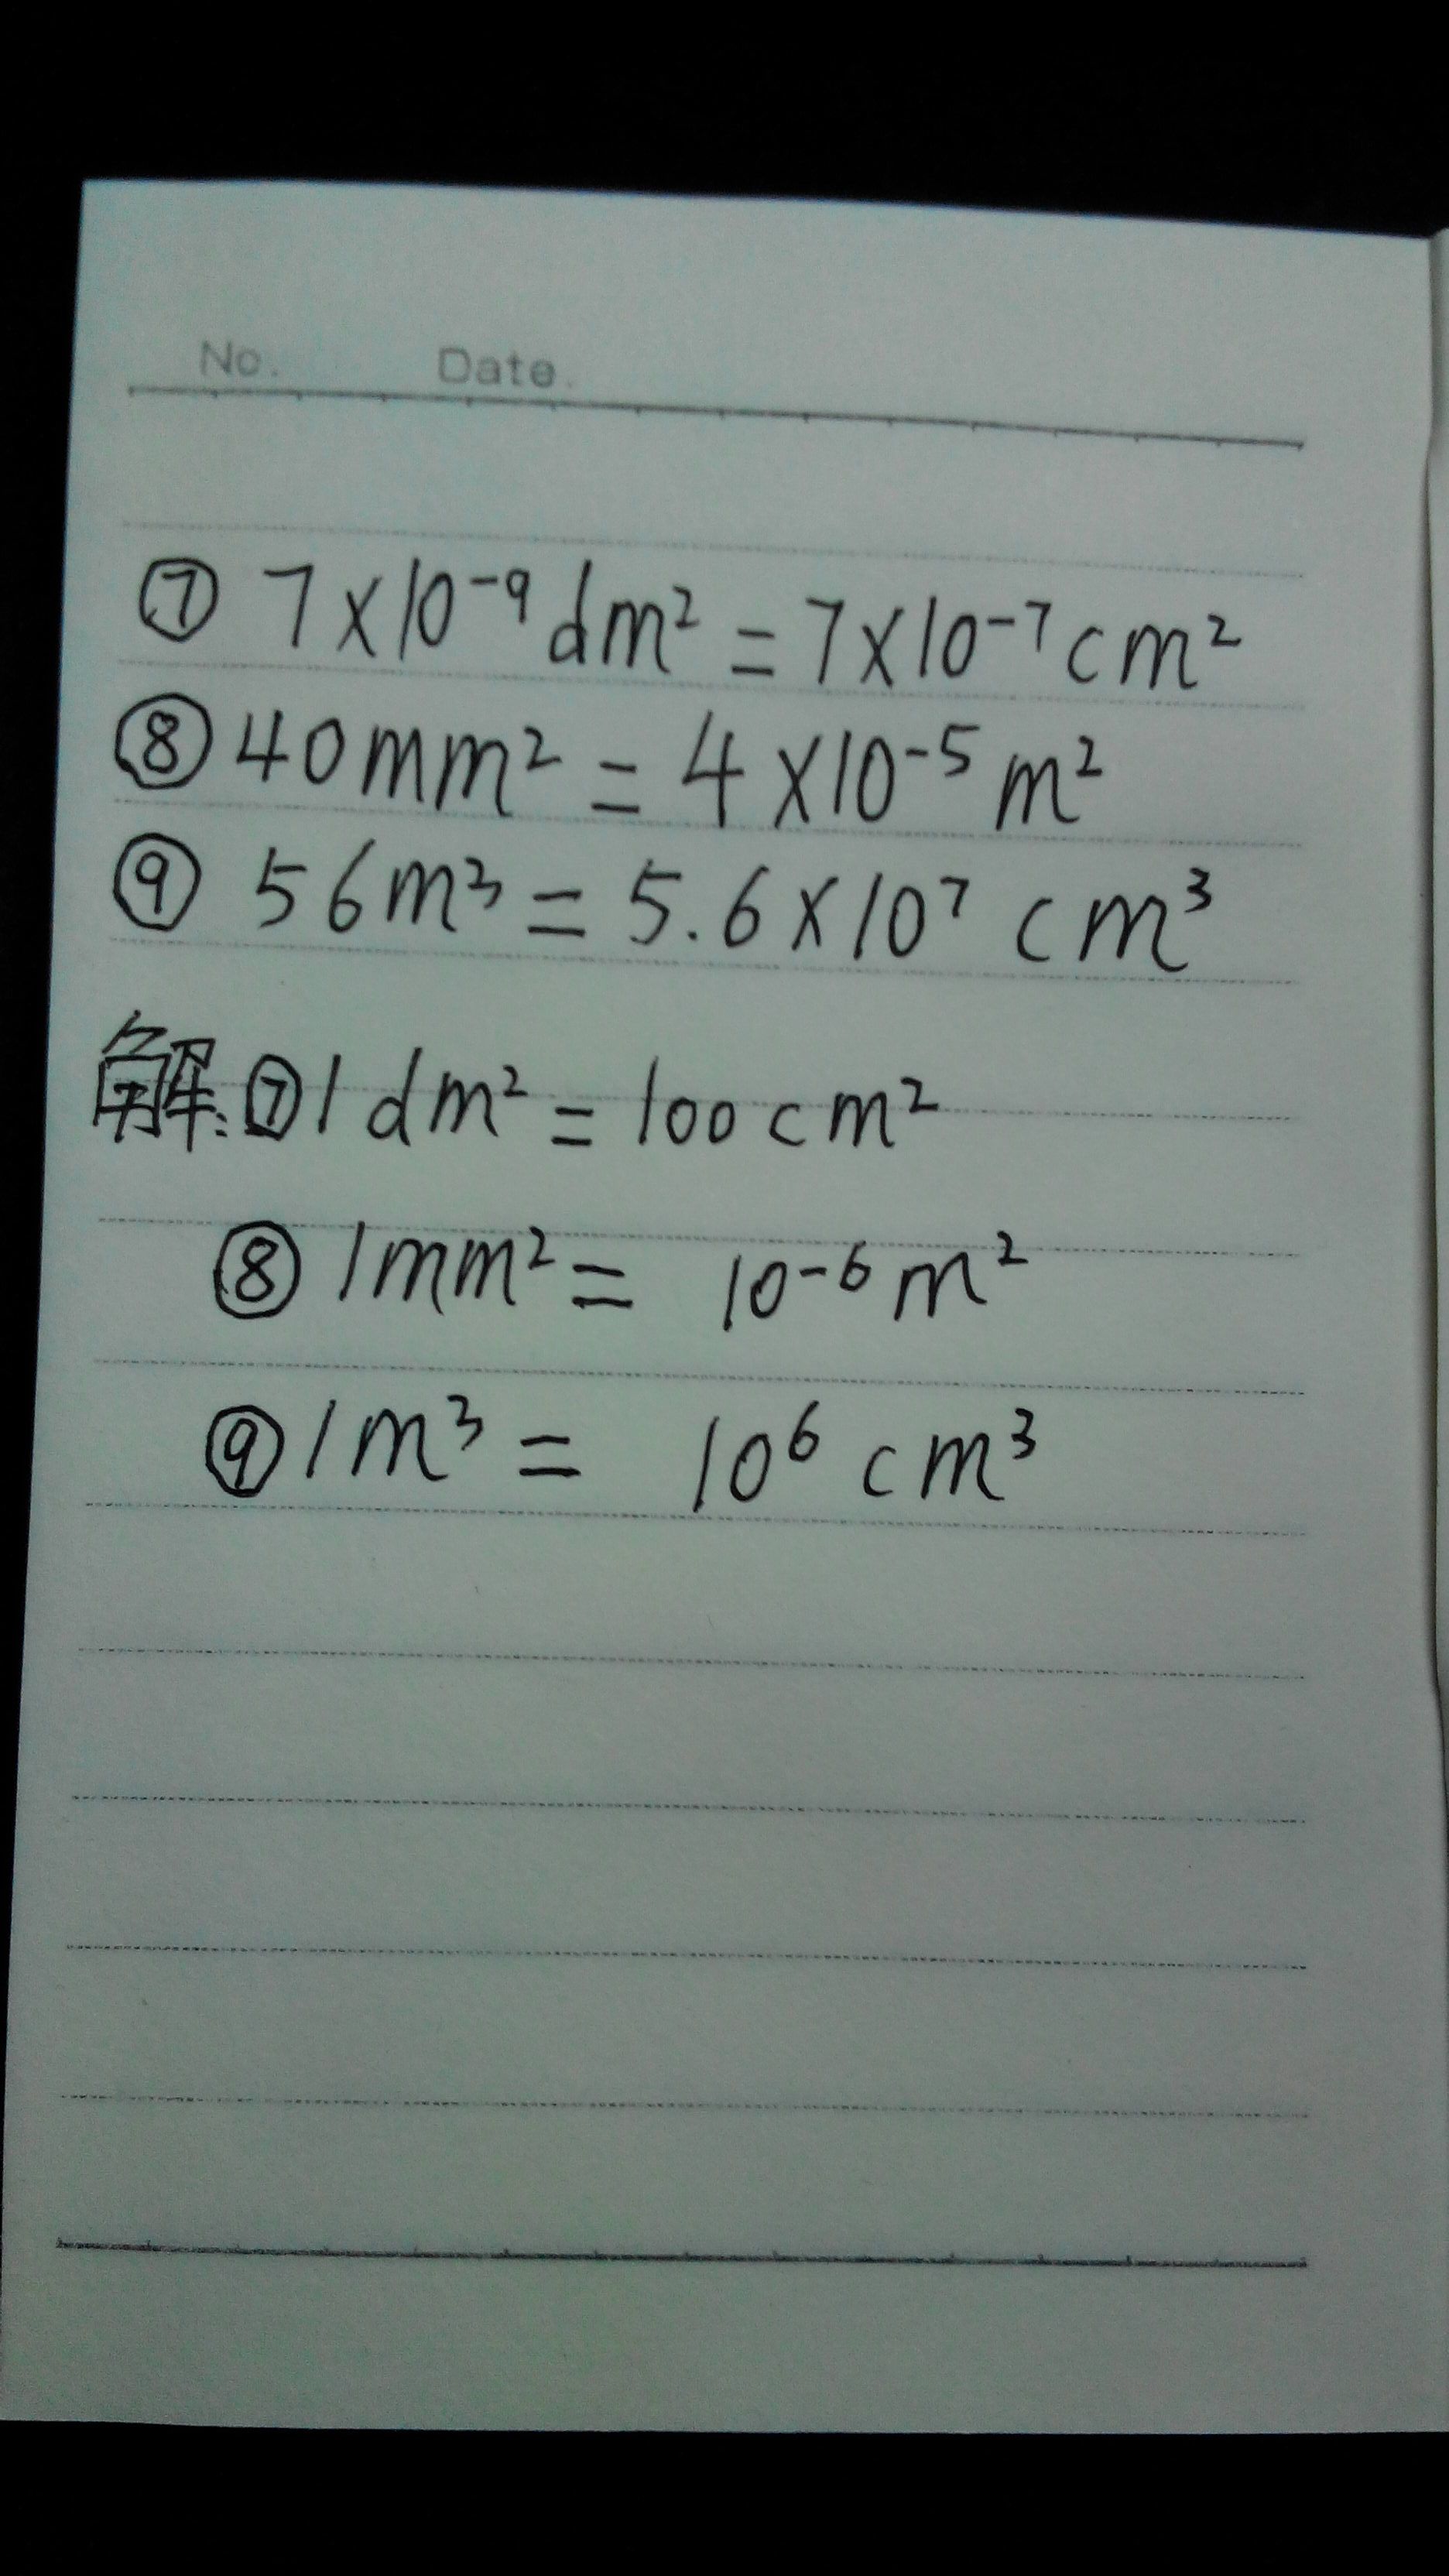 No. Date.
⑦ 7×10⁻⁹dm²=7×10⁻⁷cm²
⑧ 40mm²=4×10⁻⁵m²
⑨ 56m³=5.6×10⁷cm³
解:⑦1dm²=100cm²
⑧1mm²=10⁻⁶m²
⑨1m³=10⁶cm³